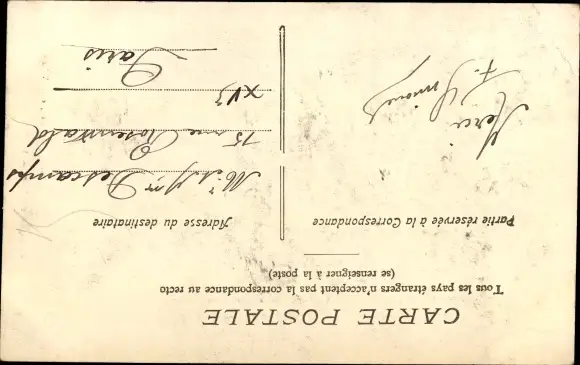 CARTE POSTALE
Tous les pays étrangers n'acceptent pas la correspondance au recto
(se renseigner à la poste)
Partie réservée à la Correspondance
Adresse du destinataire
Merci
F. Simonet
Descamps
15 rue Rosenwald
XVe
Paris